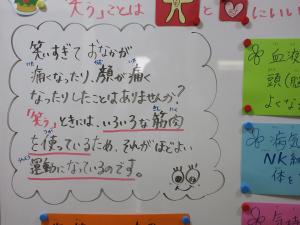 "笑う"ことは と にいい
笑いすぎて おなかが
痛くなったり、顔が痛く
なったりしたことはありませんか?
「笑う」ときには、いろいろな筋肉
を使っているため、それがほどよい
運動になっているのです。
血液
頭(脳
よくな
病気
NK細
体を
気持